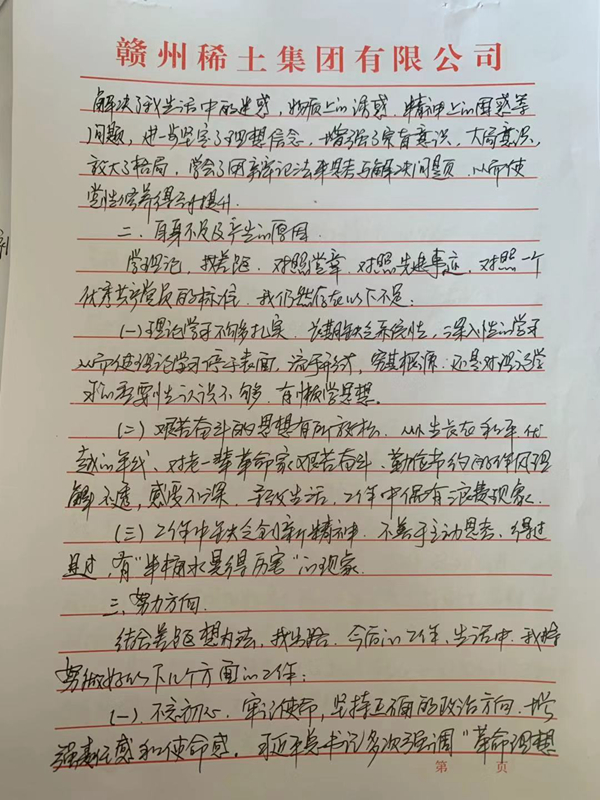 赣州稀土集团有限公司
解决了我生活中的迷惑，物质上的诱惑，精神上的困惑等
问题，进一步坚定了理想信念，增强了宗旨意识、大局意识，
放大了格局，学会了用辩证法来思考与解决问题，从而使
党性修养得到提升。
二、自身不足及产生的原因
学理论，找差距，对照党章，对照先进事迹，对照一个
优秀共产党员的标准，我仍然存在以下不足：
(一)理论学习不够扎实。长期缺乏系统性，深入性的学习
从而使理论学习停于表面，流于形式，究其根源：还是对理论学
习的重要性认识不够，有懒学思想。
(二)艰苦奋斗的思想有所放松。从生长在和平优
越的年代，对老一辈革命家艰苦奋斗、勤俭节约的作风理
解不透，感受不深，导致生活，工作中保有浪费现象。
(三)工作中缺乏创新精神。不善于主动思考，得过
且过，有“半桶水晃得厉害”的现象
三、努力方向
结合差距想办法，找出路，今后的工作、生活中，我将
努力做好以下几个方面的工作：
(一)、不忘初心、牢记使命，坚持正确的政治方向，增
强责任感和使命感。习近平总书记多次强调“革命理想
第 页